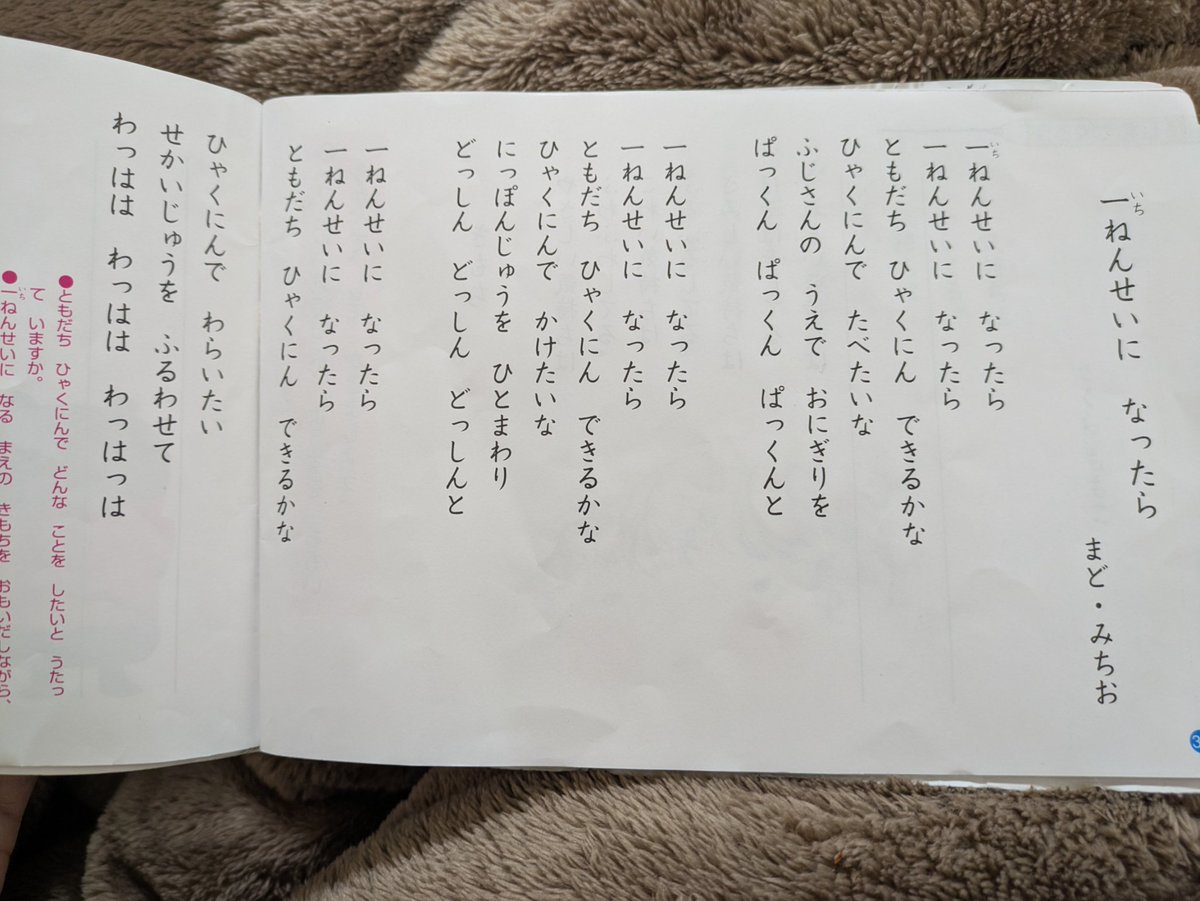 一ねんせいに なったら
まど・みちお
一ねんせいに なったら
一ねんせいに なったら
ともだち ひゃくにん できるかな
ひゃくにんで たべたいな
ふじさんの うえで おにぎりを
ぱっくん ぱっくん ぱっくんと
一ねんせいに なったら
一ねんせいに なったら
ともだち ひゃくにん できるかな
ひゃくにんで かけたいな
にっぽんじゅうを ひとまわり
どっしん どっしん どっしんと
一ねんせいに なったら
一ねんせいに なったら
ともだち ひゃくにん できるかな
ひゃくにんで わらいたい
せかいじゅうを ふるわせて
わっはは わっはは わっはっは
●ともだち ひゃくにんで どんな ことを したいと うたっ
て いますか。
●一ねんせいに なる まえの きもちを おもいだしながら、